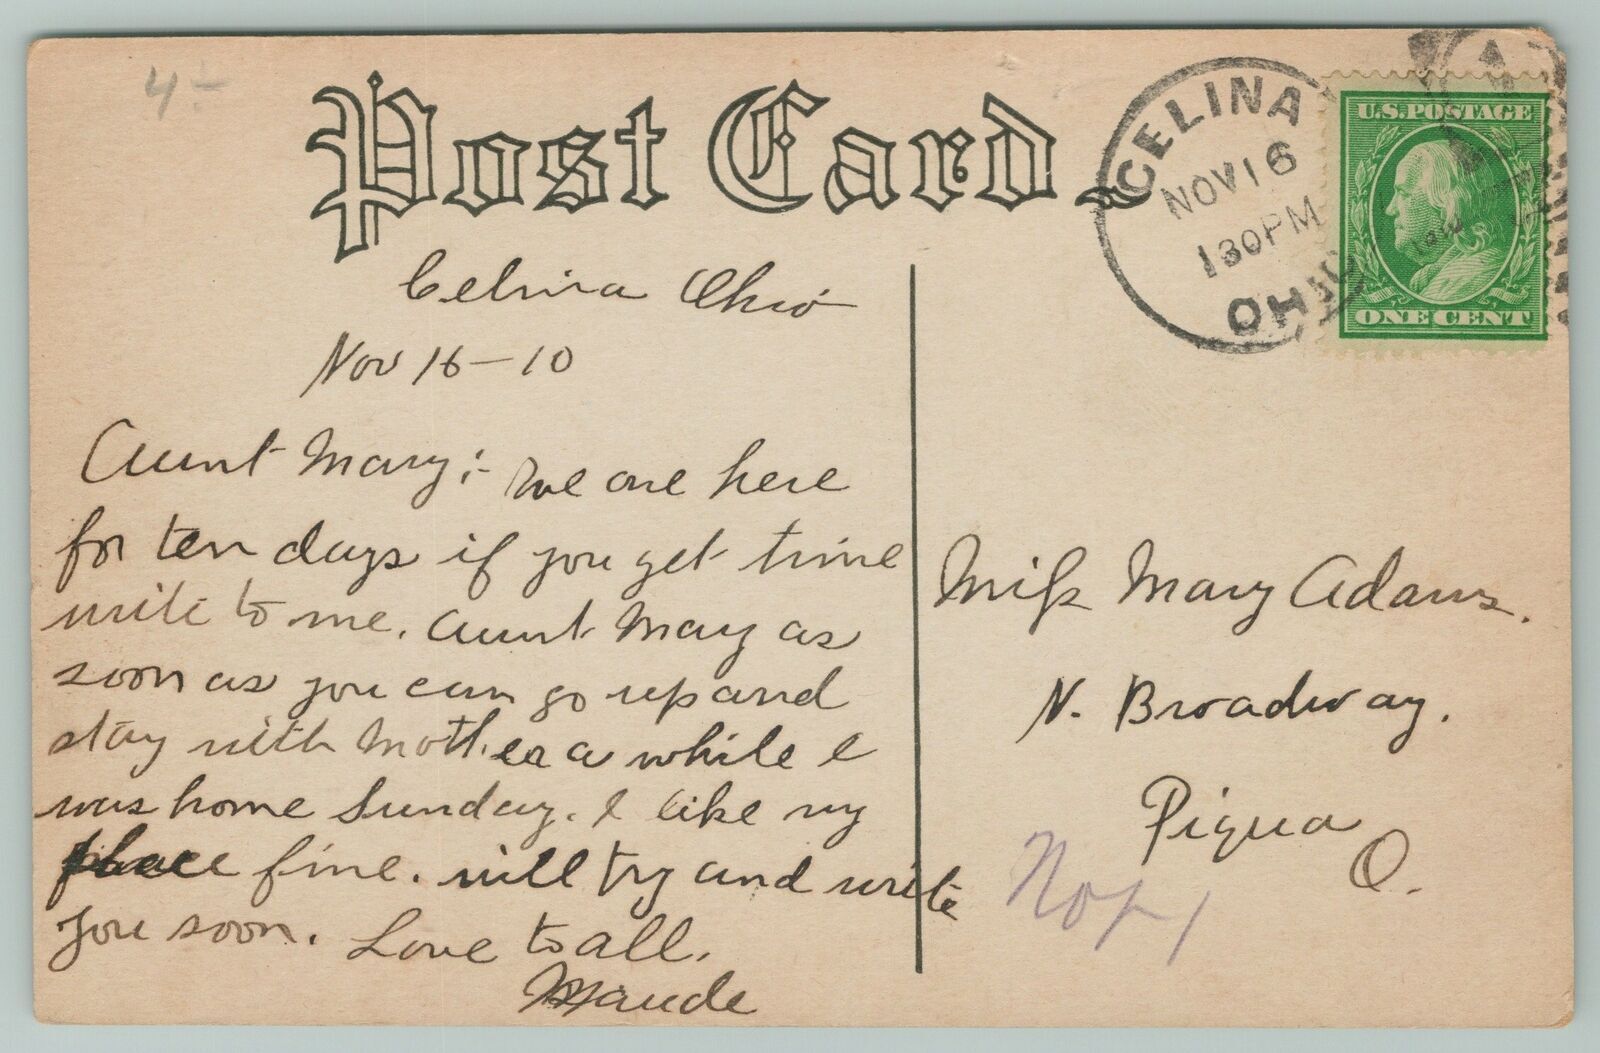 4-
Post Card
CELINA
NOV 16
130PM
OHIO
U.S. POSTAGE
ONE CENT
Celina Ohio
Nov 16-10
Aunt Mary:- We are here
for ten days if you get time
write to me. Aunt Mary as
soon as you can go up and
stay with Mother a while I
was home Sunday. I like my
place fine. will try and write
you soon. Love to all.
Maude
Miss Mary Adams.
N. Broadway.
Piqua
O.